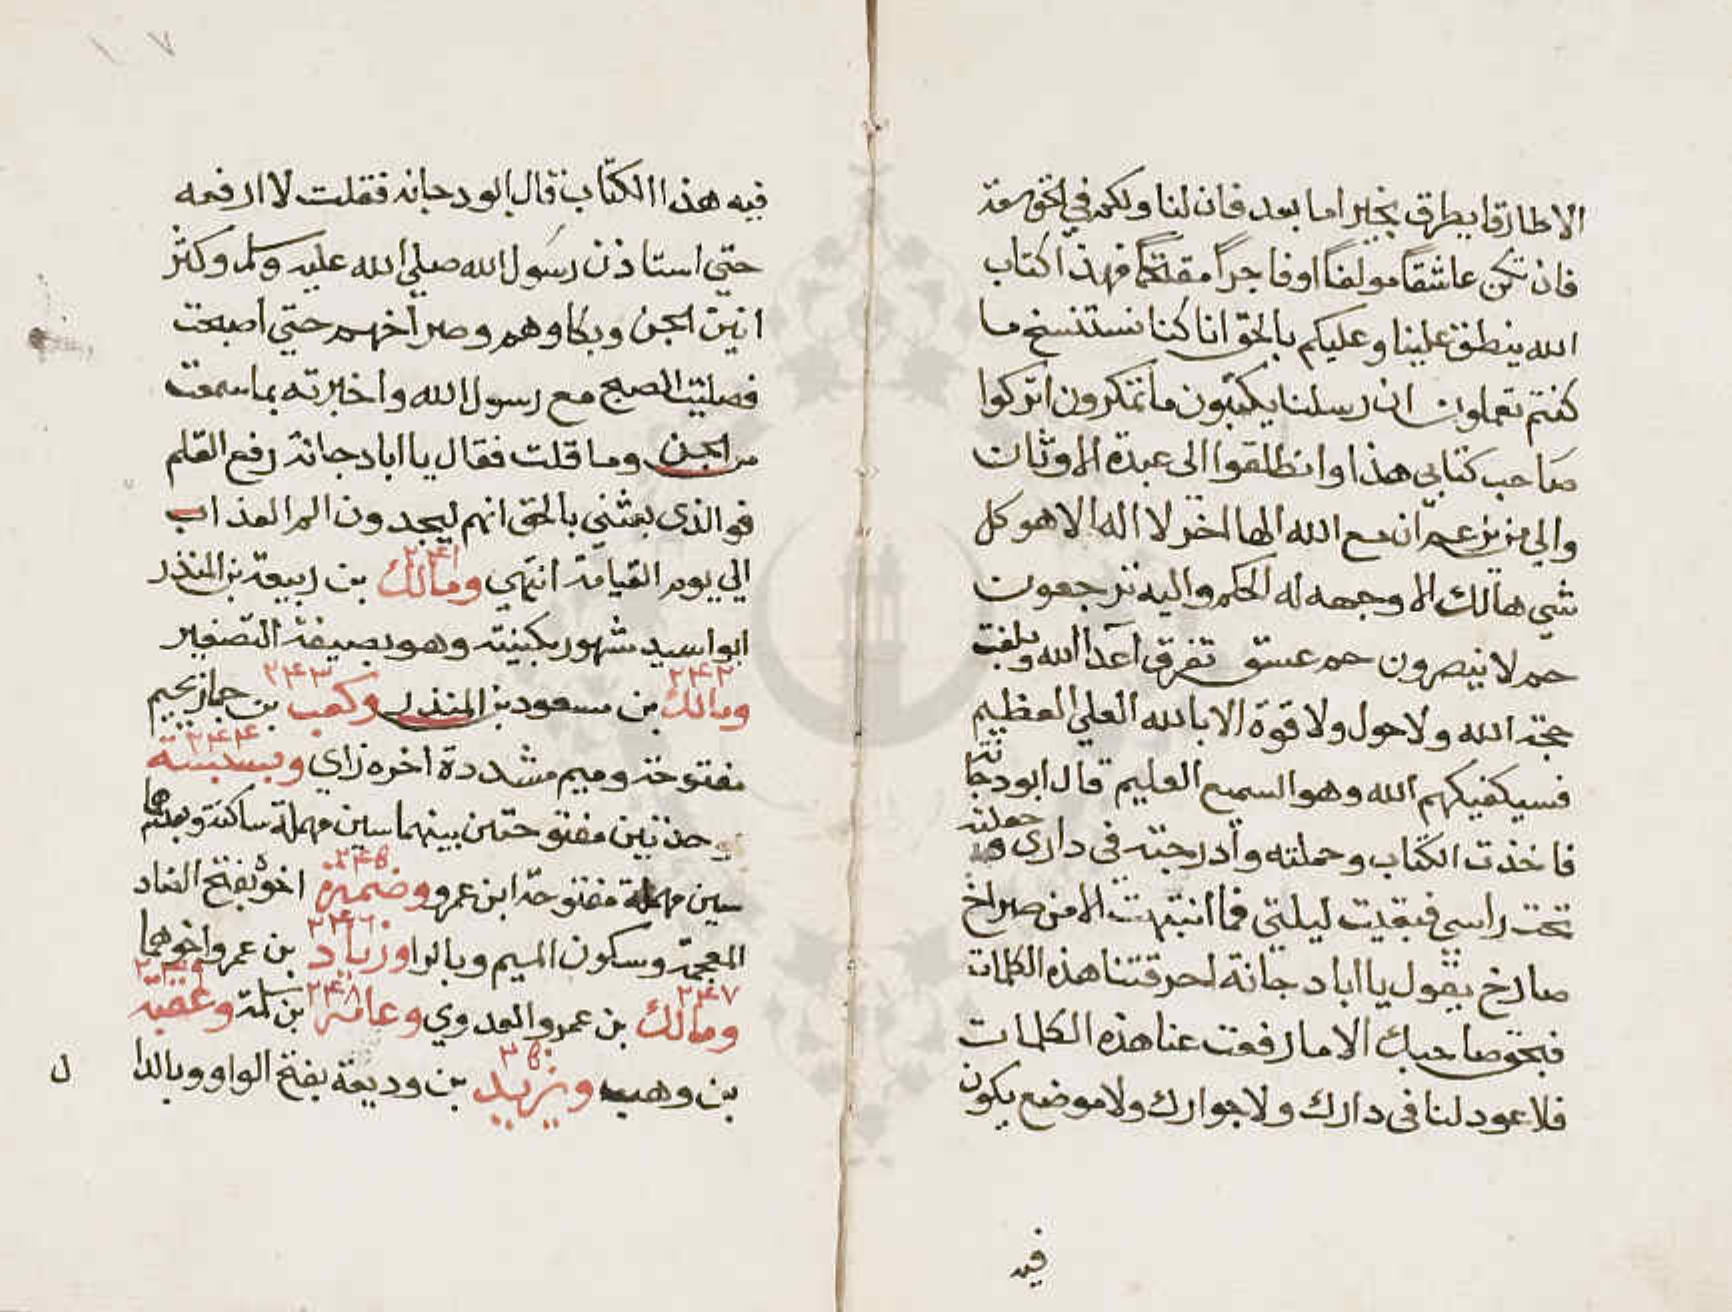 الاطارقا يطرق بخير اما بعد فان لنا ولكم في الحق سعة
فان تكن عاشقًا مولعًا او فاجرًا مقتحمًا فهذا كتاب
الله ينطق علينا وعليكم بالحق انا كنا نستنسخ ما
كنتم تعملون ان رسلنا يكتبون ما تمكرون اتركوا
صاحب كتابي هذا وانطلقوا الى عبدة الاوثان
والي من يزعم ان مع الله الها اخر لا اله الا هو كل
شي هالك الا وجهه له الحكم واليه ترجعون
حم لا ينصرون حم عسق تفرق اعداالله وبلغت
حجة الله ولا حول ولا قوة الا بالله العلي العظيم
فسيكفيكهم الله وهو السميع العليم قال ابودجانة
فاخذت الكتاب وحملته وادرجته في داري وجعلته
تحت راسي فبقيت ليلتي فما انتبهت الا من صراخ
صارخ يقول يا ابا دجانة احرقتنا هذه الكلمات
فبحق صاحبك الا ما رفعت عنا هذه الكلمات
فلا عود لنا في دارك ولا جوارك ولا موضع يكون
فيه
١٠٧
فيه هذا الكتاب قال ابودجانه فقلت لا ارفعه
حتي استاذن رسول الله صلي الله عليه وسلم وكثر
انين الجن وبكاوهم وصراخهم حتي اصبحت
فصليت الصبح مع رسول الله واخبرته بما سمعت
من الجن وما قلت فقال يا ابا دجانة رفع القلم
فوالذي بعثني بالحق انهم ليجدون الم العذاب
الي يوم القيامة انتهي ومالك ٢٤١ بن ربيعة بن المنذر
ابواسيد مشهور بكنيته وهو بصيغة التصغير
ومالك ٢٤٢ بن مسعود بن المنذر وكعب ٢٤٣ بن جماز بجيم
مفتوحة وميم مشددة اخره زاي وبسبسة ٢٤٤
بموحدتين مفتوحتين بينهما سين مهملة ساكنة وبعدهما
سين مهملة مفتوحة ابن عمرو وضمرة ٢٤٥ اخوه بفتح الضاد
المعجمة وسكون الميم وبالرا وزياد ٢٤٦ بن عمرو اخوهما
ومالك ٢٤٧ بن عمرو العدوي وعامر ٢٤٨ بن سلمة وعقبة
بن وهب ويزيد بن وديعة بفتح الواو وبالدا
ل